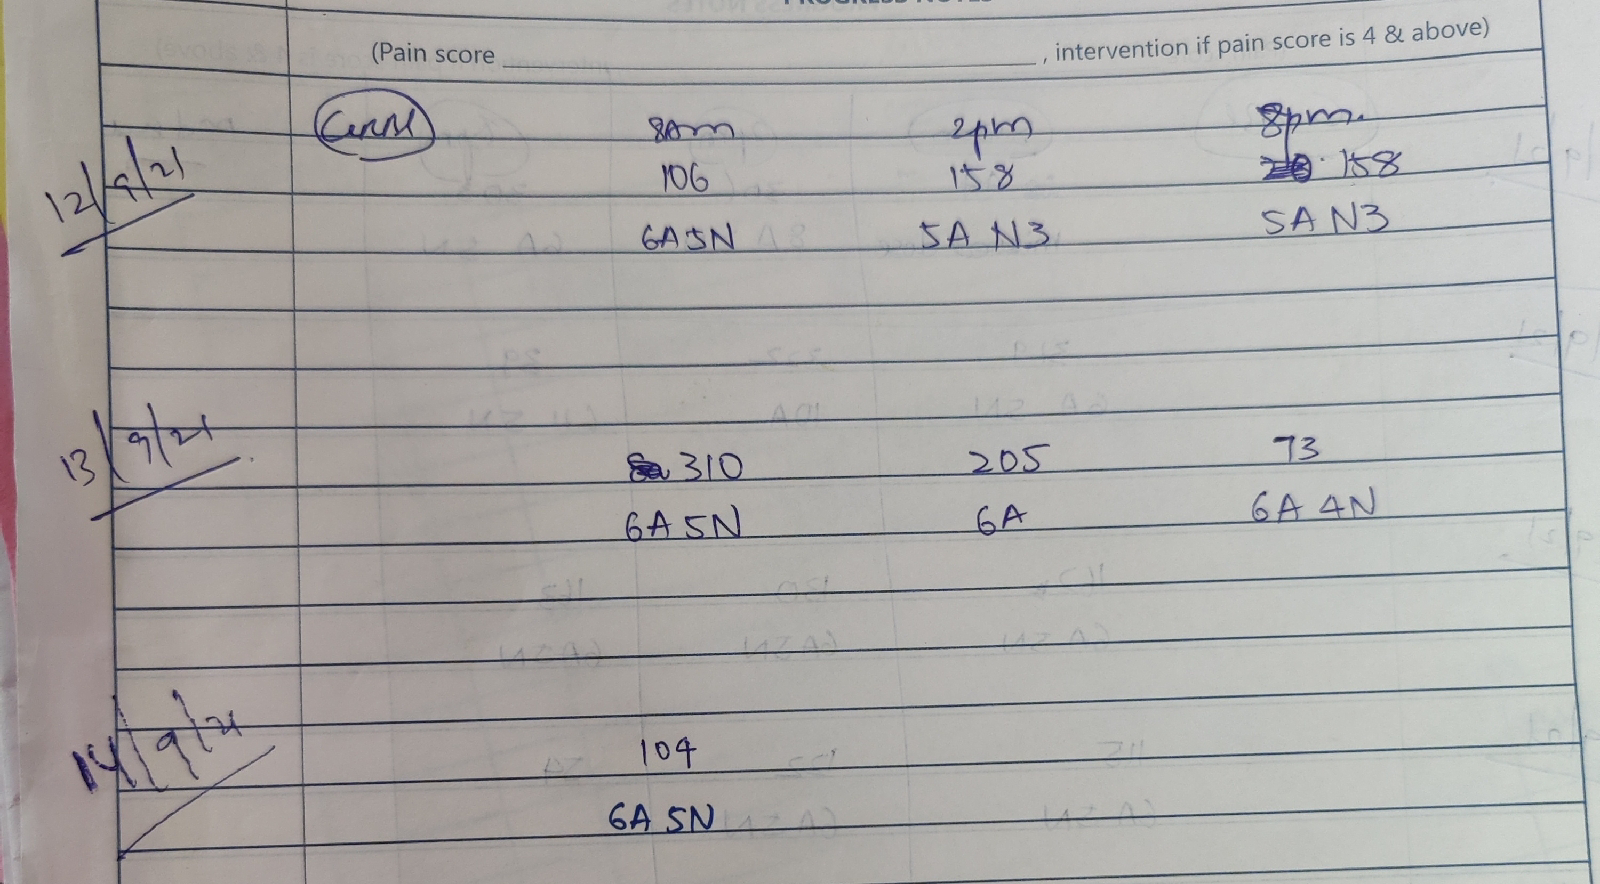 PROGRESS NOTES
(Pain score ____________________, intervention if pain score is 4 & above)
8Am 2pm 8pm
12/9/21 106 158 158
6A5N 5A N3 5A N3
13/9/21 310 205 73
6A 5N 6A 6A 4N
14/9/21 104
6A 5N